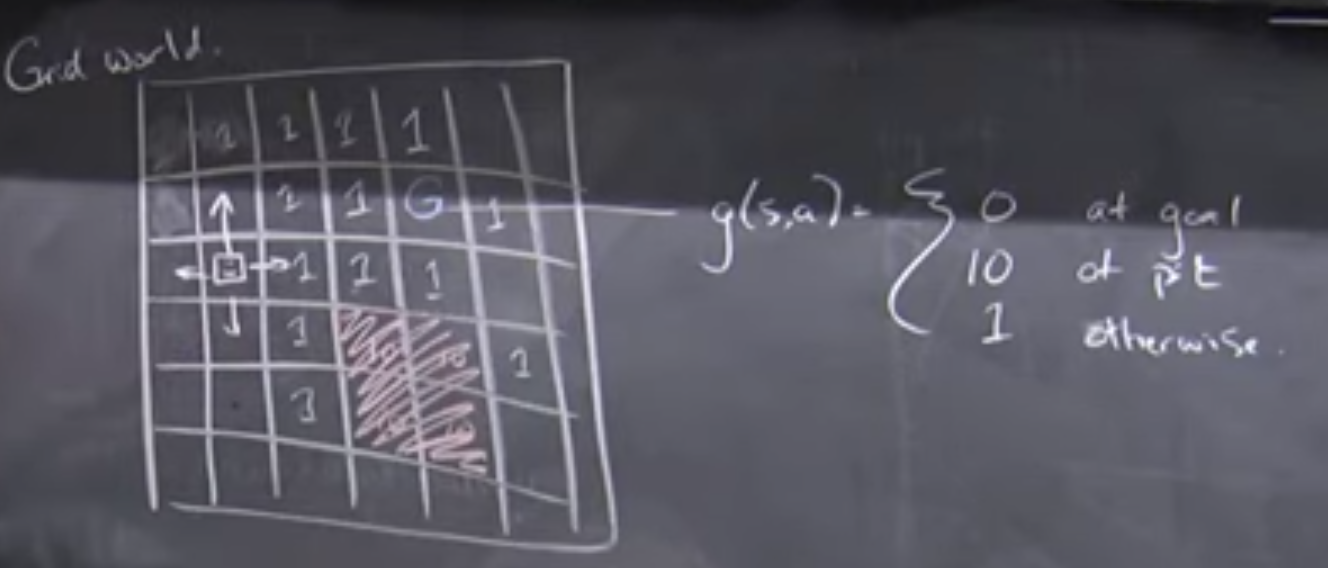 Grid world.
1 1 1 1
1 1 G 1
1 1 1
1
1
1
g(s,a) = { 0 at goal
10 at pit
1 otherwise.